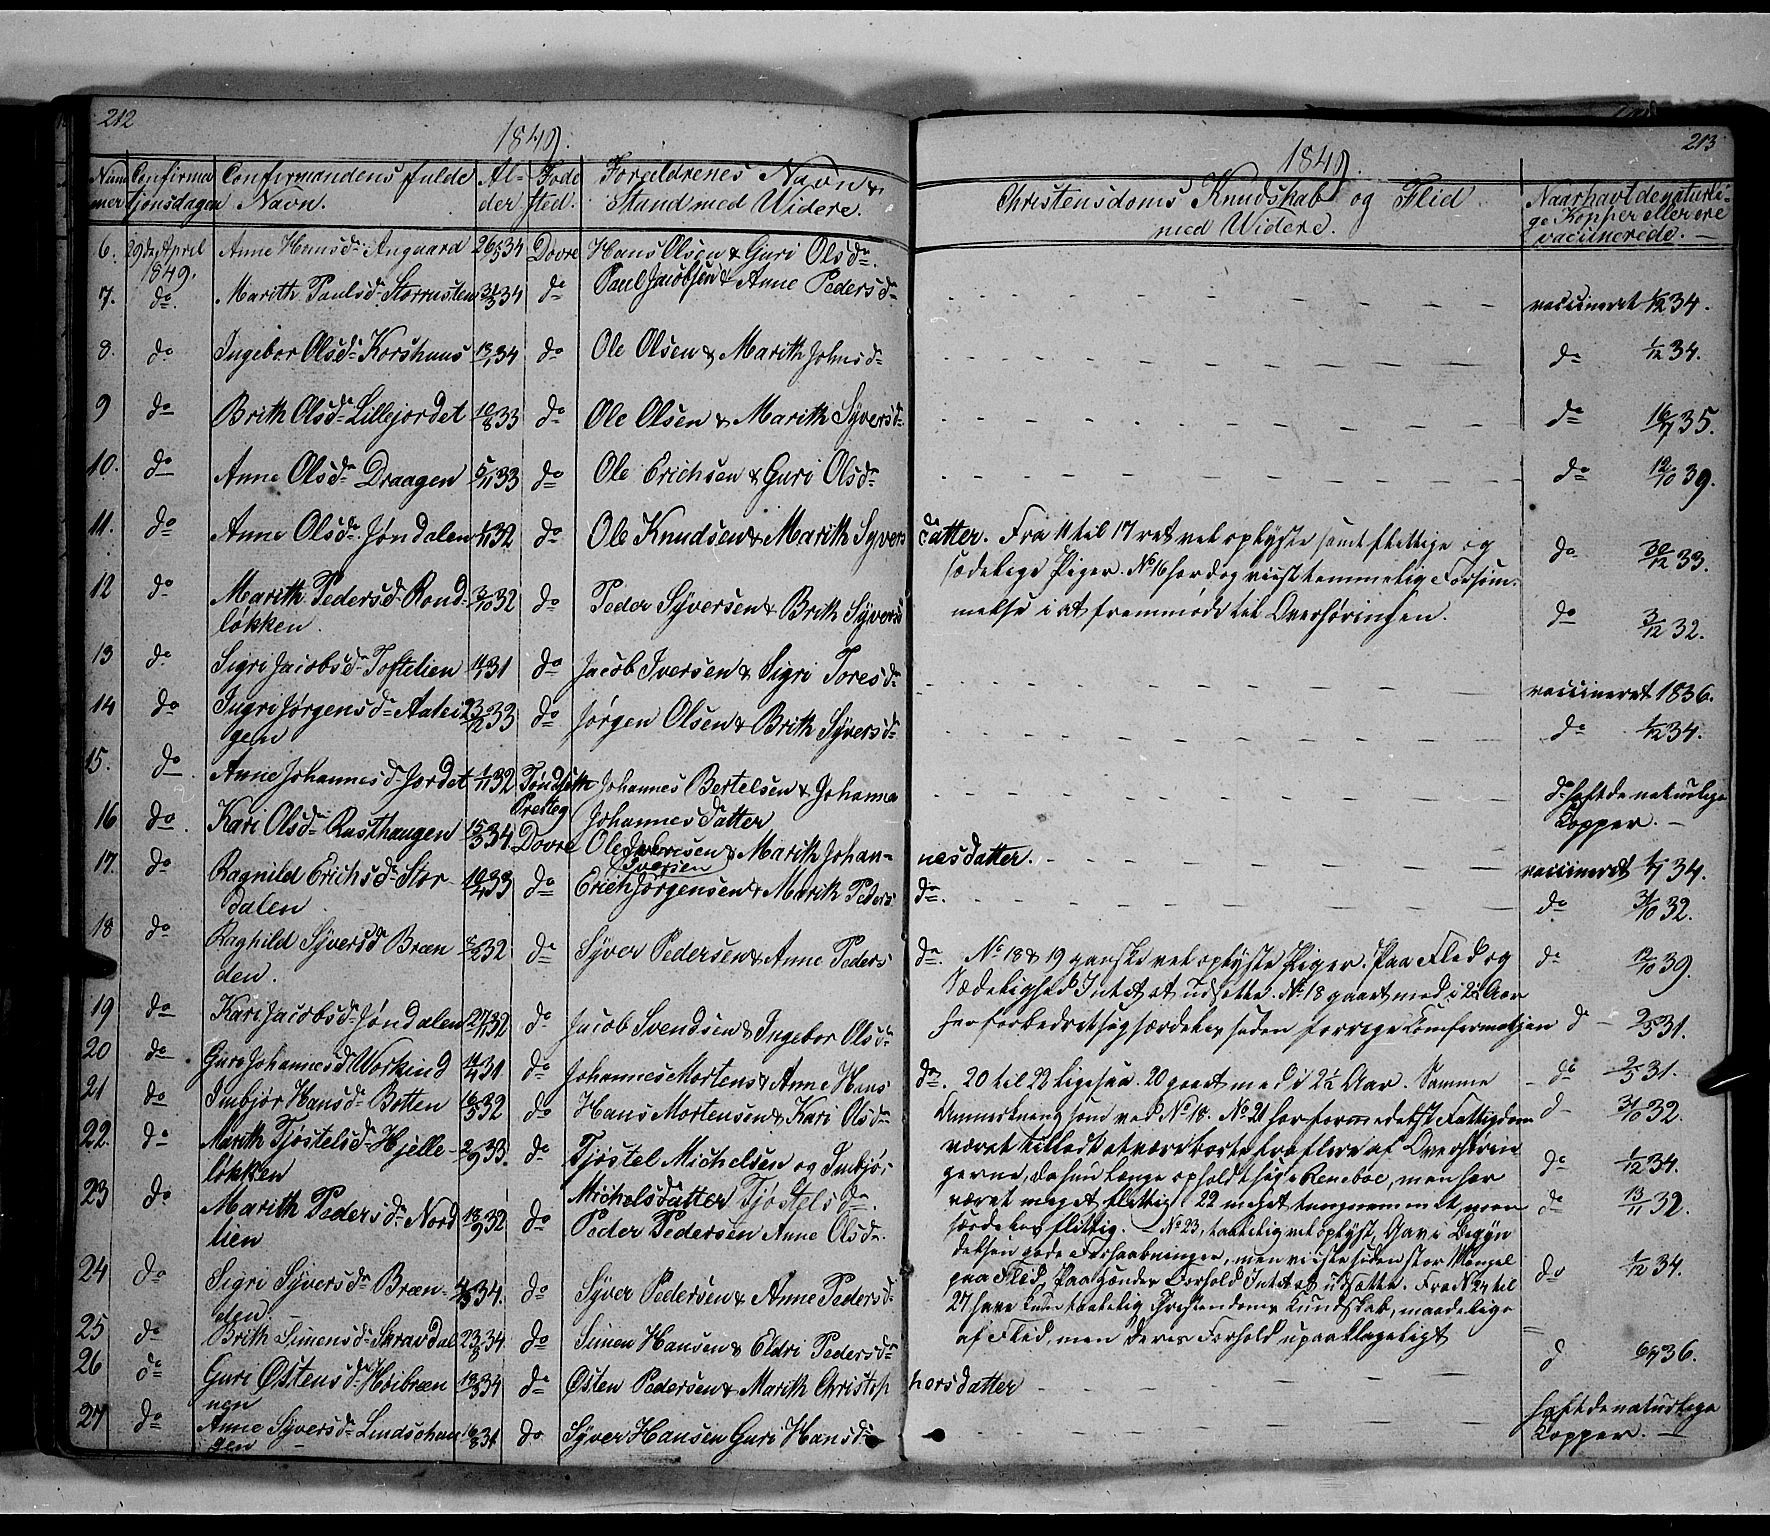 212
1849.
Nummer Confirmationsdagen Confirmandens fulde Navn. Alder Fødested. Forældrenes Navn & Stand med Widere.
6. 29de April 1849. Anne Hansda Angaard 26/5 34 Dovre Hans Olsen & Guri Olsda.
7. do. Marith Paulsda Storrusten 31/3 34 do Paul Jacobsen & Anne Pedersda
8. do Ingebor Olsda Korshuus 34 do Ole Olsen & Marith Johnsda
9 do Brith Olsda Lillejordet 10/8 33 do Ole Olsen & Marith Syversda
10. do Anne Olsda Draagen 5/11 33 do Ole Erichsen & Guri Olsda
11. do Anne Olsda Jøndalen 32 do Ole Knudsen & Marith Syvers
12 do Marith Pedersda Rond-
løkken. 3/10 32 do Peder Syversen & Brith Syvers
13 do Sigri Jacobsda Toftelien 31 do Jacob Iversen & Sigri Toresda
14 do Ingri Jørgensda
gen 23/12 33 do Jørgen Olsen & Brith Syversda
15. do Anne Johannesda Jordet 32 Tøndseth Johannes Bertelsen & Johanna
Presteg Johannesdatter
16 do. Kari Olsda Rusthaugen 15/3 34 Dovre Ole & Marith Johan-
Iversen
17. do Ragnild Erichsda Stor
dalen 33 do Erich Jørgensen & Marith Peders
18 do Raghild Syversda Bræn
den. 32 do Syver Pedersen & Anne Peders
19 do Kari Jacobsda Jøndalen 27/11 32 do Jacob Svendsen & Ingebor Olsda
20 do Guri Johannesda Workind 31 do Johannes Mortens & Anne Hans
21 do Imbjør Hansda Botten 16/5 32 do Hans Mortensen & Kari Olsda
22. do Marith Tjøstelsda Hjelle-
løkken 2/9 33. do Tjøstel Michelsen og Imbjø-
Michelsdatter Tjøstelsda.
23 do Marith Pedersda Nord
lien 18/9 32 do Peder Pedersen Anne Olsda.
24 do Sigri Syversda Bræn-
den 34. do Syver Pedersen & Anne Pedersda
25 do Brith Simensda 23/8 34. do Simen Hansen & Eldri Pedersda
26 do Guri Østensda Høibræn
nen 18/3 34 do Østen Pedersen & Marith Christop
27 do Anne Syversda
gen 16/8 31 do Syver Hansen Guri Hansda
213
1849.
Christensdoms Kundskab og Flid
med Widere.
Naar havt de naturli-
ge Kopper eller ere
vaccinerede. —
vaccineret 1/12 34.
do 1/12 34.
do 16/7 35.
do 12/10 39.
datter. Fra 11 til 17 ret vel oplyste samt flittige og do 30/12 33.
sædelige Piger. No 16 har dog viist temmelig Forsøm-
melse i at fremmøde til Overhøringen. do 3/12 32.
vaccineret 1836.
do 1/12 34.
do haft de naturlige
Kopper. —
nesdatter. vaccineret 34.
do. do 31/10 32.
da. No 18 & 19 ganske vel oplyste Piger. Paa Flid og do 12/10 39.
Sædelighed Intet at udsætte. No 18 gaaet med i 2½ Aar
har forbedret sig særdeles siden forrige Confirmatjon d — 2/5 31.
da. 20 til 22 ligesaa. 20 gaaet med i 2½ Aar. Samme — do 2/5 31.
Anmerkning som ved No 18. No 21 har formedelst Fattigdom d — 31/10 32.
været tilladt at være borte fra flere af Overhørin
gerne, da hun længe opholdt sig i Reneboe, men har do 1/12 34.
været meget flittig. 22 meget tungnemmet, men do 13/11 32.
særdeles flittig. No 23, taalelig vel oplyst, Gav i Begyn
delsen gode Forhaabninger, men viiste siden stor Mangel
paa Flid, Paa hendes Forhold Intet at udsætte. Fra No 24 til do 1/12 34.
27 have kun taalelig Christendoms Kundskab, maadelige
af Flid, men deres Forhold upaaklageligt
d 6/7 36.
horsdatter
haft de naturlige
Kopper. —